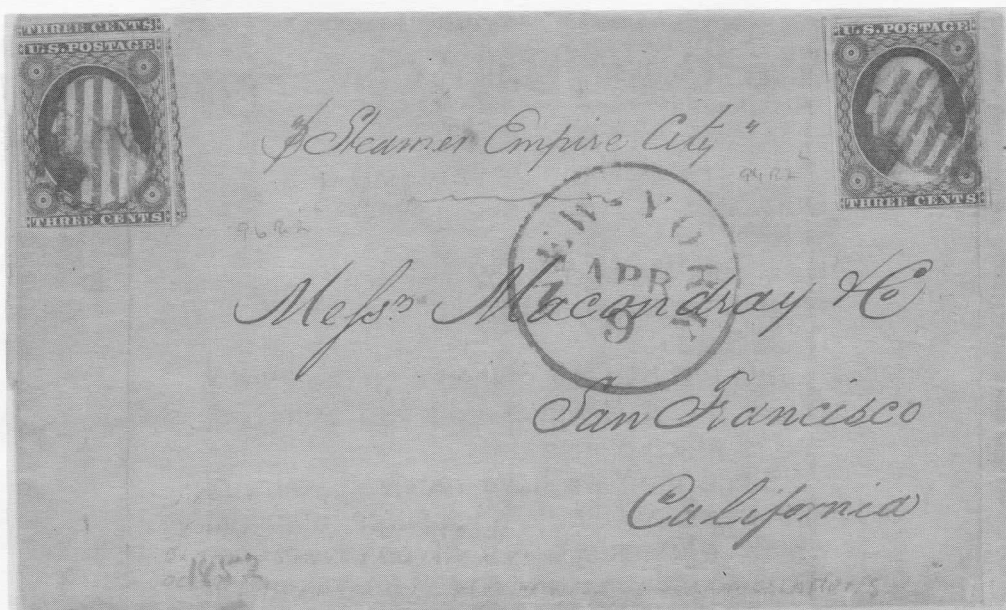 THREE CENTS
U.S. POSTAGE
THREE CENTS
U.S. POSTAGE
THREE CENTS
"p Steamer Empire City"
94R2
96R2
NEW-YORK
APR
9
Messrs Macondray & Co
San Francisco
California
1852